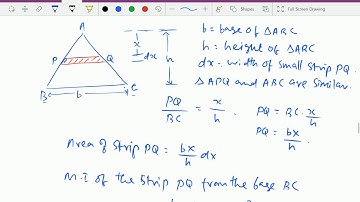 Full Screen Drawing
A
x
dx
h
P
Q
B
b
C
b = base of ΔABC
h = height of ΔABC
dx = width of small strip PQ.
ΔAPQ and ABC are similar.
PQ/BC = x/h
PQ = BC. x/h
PQ = bx/h.
Area of strip PQ = bx/h dx
M.I of the strip PQ from the base BC